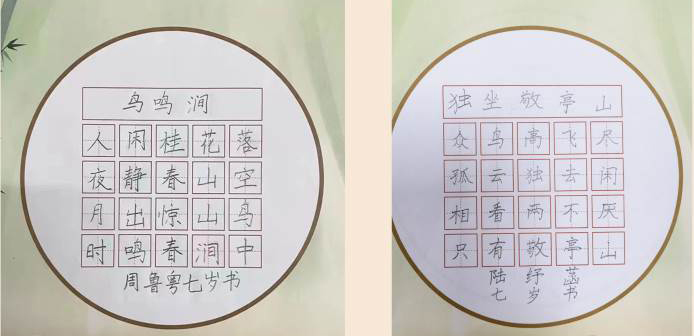 鸟鸣涧
人闲桂花落
夜静春山空
月出惊山鸟
时鸣春涧中
周鲁粤七岁书
独坐敬亭山
众鸟高飞尽
孤云独去闲
相看两不厌
只有敬亭山
陆纾菡
七岁书